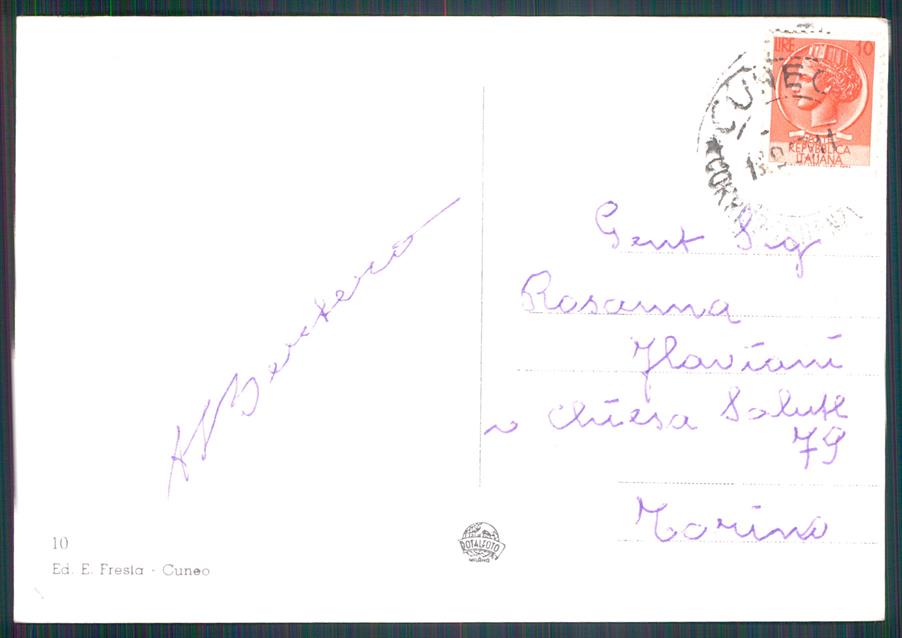 LIRE 10
CUNEO
REPVBBLICA
ITALIANA
Gent Sig
Rosanna
Flaviani
v Chiesa Salute
79
Torino
10
Ed. E. Fresia - Cuneo
ROTALFOTO
MILANO